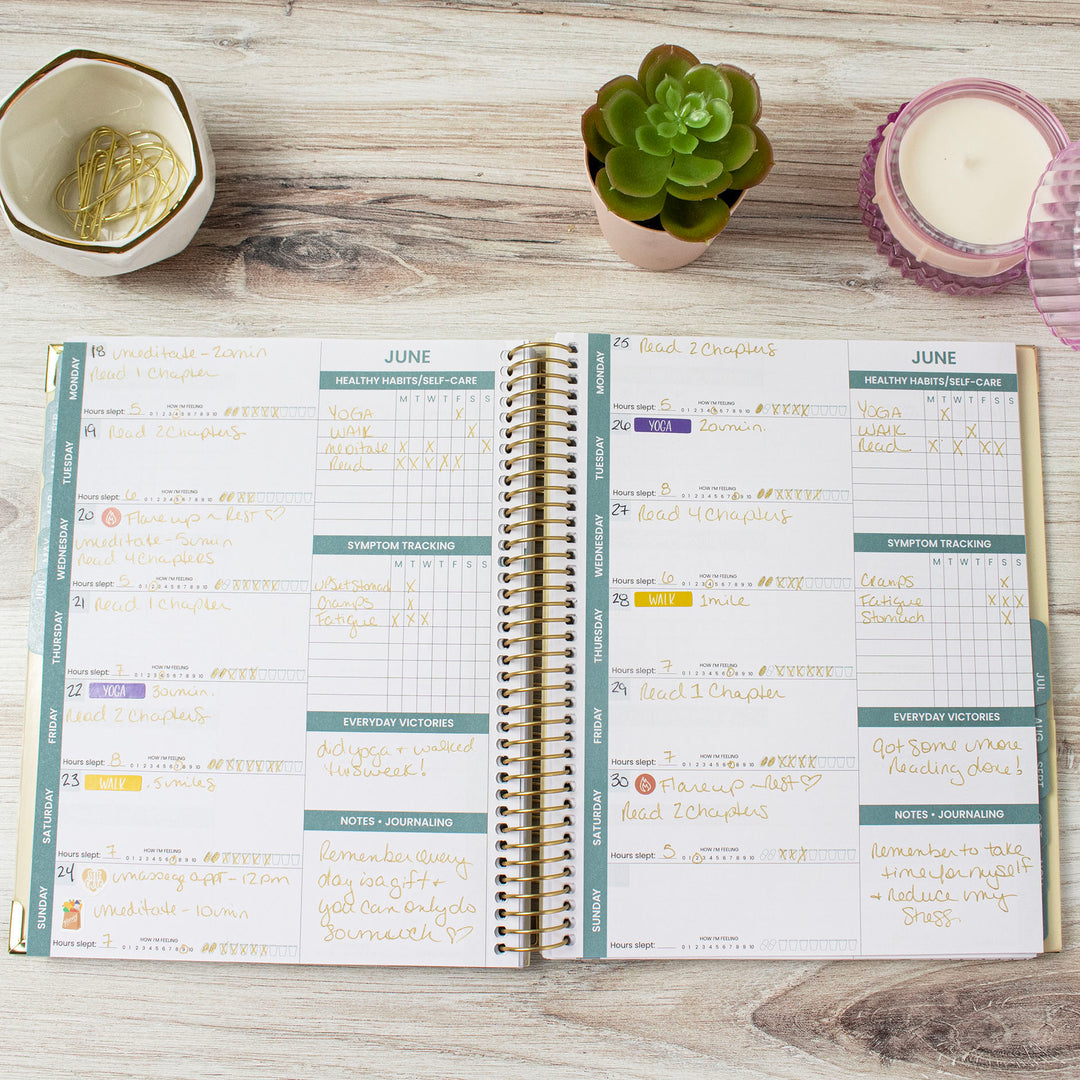 MONDAY
18 meditate - 20min
Read 1 Chapter
Hours slept: 5 HOW I'M FEELING
0 1 2 3 4 5 6 7 8 9 10
TUESDAY
19 Read 2 Chapters
Hours slept: 6 HOW I'M FEELING
0 1 2 3 4 5 6 7 8 9 10
WEDNESDAY
20 Flare up ~ Rest ♡
meditate - 5min
Read 4 Chapters
Hours slept: 5 HOW I'M FEELING
0 1 2 3 4 5 6 7 8 9 10
THURSDAY
21 Read 1 Chapter
Hours slept: 7 HOW I'M FEELING
0 1 2 3 4 5 6 7 8 9 10
FRIDAY
22 YOGA 30min.
Read 2 Chapters
Hours slept: 8 HOW I'M FEELING
0 1 2 3 4 5 6 7 8 9 10
SATURDAY
23 WALK .5 miles
Hours slept: 7 HOW I'M FEELING
0 1 2 3 4 5 6 7 8 9 10
SUNDAY
24 massag appt - 12pm
meditate - 10min
Hours slept: 7 HOW I'M FEELING
0 1 2 3 4 5 6 7 8 9 10
JUNE
HEALTHY HABITS/SELF-CARE
M T W T F S S
YOGA X
WALK X
meditate X X X
Read X X X X X
SYMPTOM TRACKING
M T W T F S S
upset stomach X
Cramps X
Fatigue X X X
EVERYDAY VICTORIES
did yoga + walked
this week!
NOTES • JOURNALING
Remember every
day is a gift +
you can only do
so much ♡
MONDAY
25 Read 2 Chapters
Hours slept: 5 HOW I'M FEELING
0 1 2 3 4 5 6 7 8 9 10
TUESDAY
26 YOGA 20min.
Hours slept: 8 HOW I'M FEELING
0 1 2 3 4 5 6 7 8 9 10
WEDNESDAY
27 Read 4 Chapters
Hours slept: 6 HOW I'M FEELING
0 1 2 3 4 5 6 7 8 9 10
THURSDAY
28 WALK 1mile
Hours slept: 7 HOW I'M FEELING
0 1 2 3 4 5 6 7 8 9 10
FRIDAY
29 Read 1 Chapter
Hours slept: 7 HOW I'M FEELING
0 1 2 3 4 5 6 7 8 9 10
SATURDAY
30 Flare up ~ Rest ♡
Read 2 Chapters
Hours slept: 5 HOW I'M FEELING
0 1 2 3 4 5 6 7 8 9 10
SUNDAY
Hours slept: HOW I'M FEELING
0 1 2 3 4 5 6 7 8 9 10
JUNE
HEALTHY HABITS/SELF-CARE
M T W T F S S
YOGA X
WALK X
Read X X X X
SYMPTOM TRACKING
M T W T F S S
Cramps X
Fatigue X X X
Stomach X
EVERYDAY VICTORIES
Got some more
reading done!
NOTES • JOURNALING
Remember to take
time for myself
+ reduce my
stress
JUL
AUG
SEPT
JUN
MAY